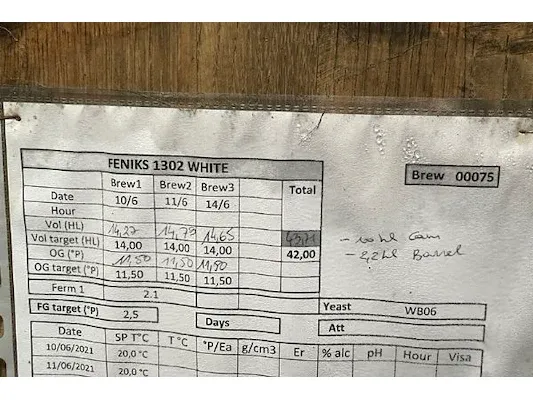 FENIKS 1302 WHITE
Brew 00075
Brew1 Brew2 Brew3 Total
Date 10/6 11/6 14/6
Hour
Vol (HL) 14,27 14,79 14,65 43,71
Vol target (HL) 14,00 14,00 14,00 42,00
OG (°P) 11,50 11,50 11,50
OG target (°P) 11,50 11,50 11,50
- hl
- 2,2 hl Barrel
Ferm 1 2.1
Yeast WB06
FG target (°P) 2,5 Days Att
Date SP T°C T °C °P/Ea g/cm3 Er % alc pH Hour Visa
10/06/2021 20,0 °C
11/06/2021 20,0 °C